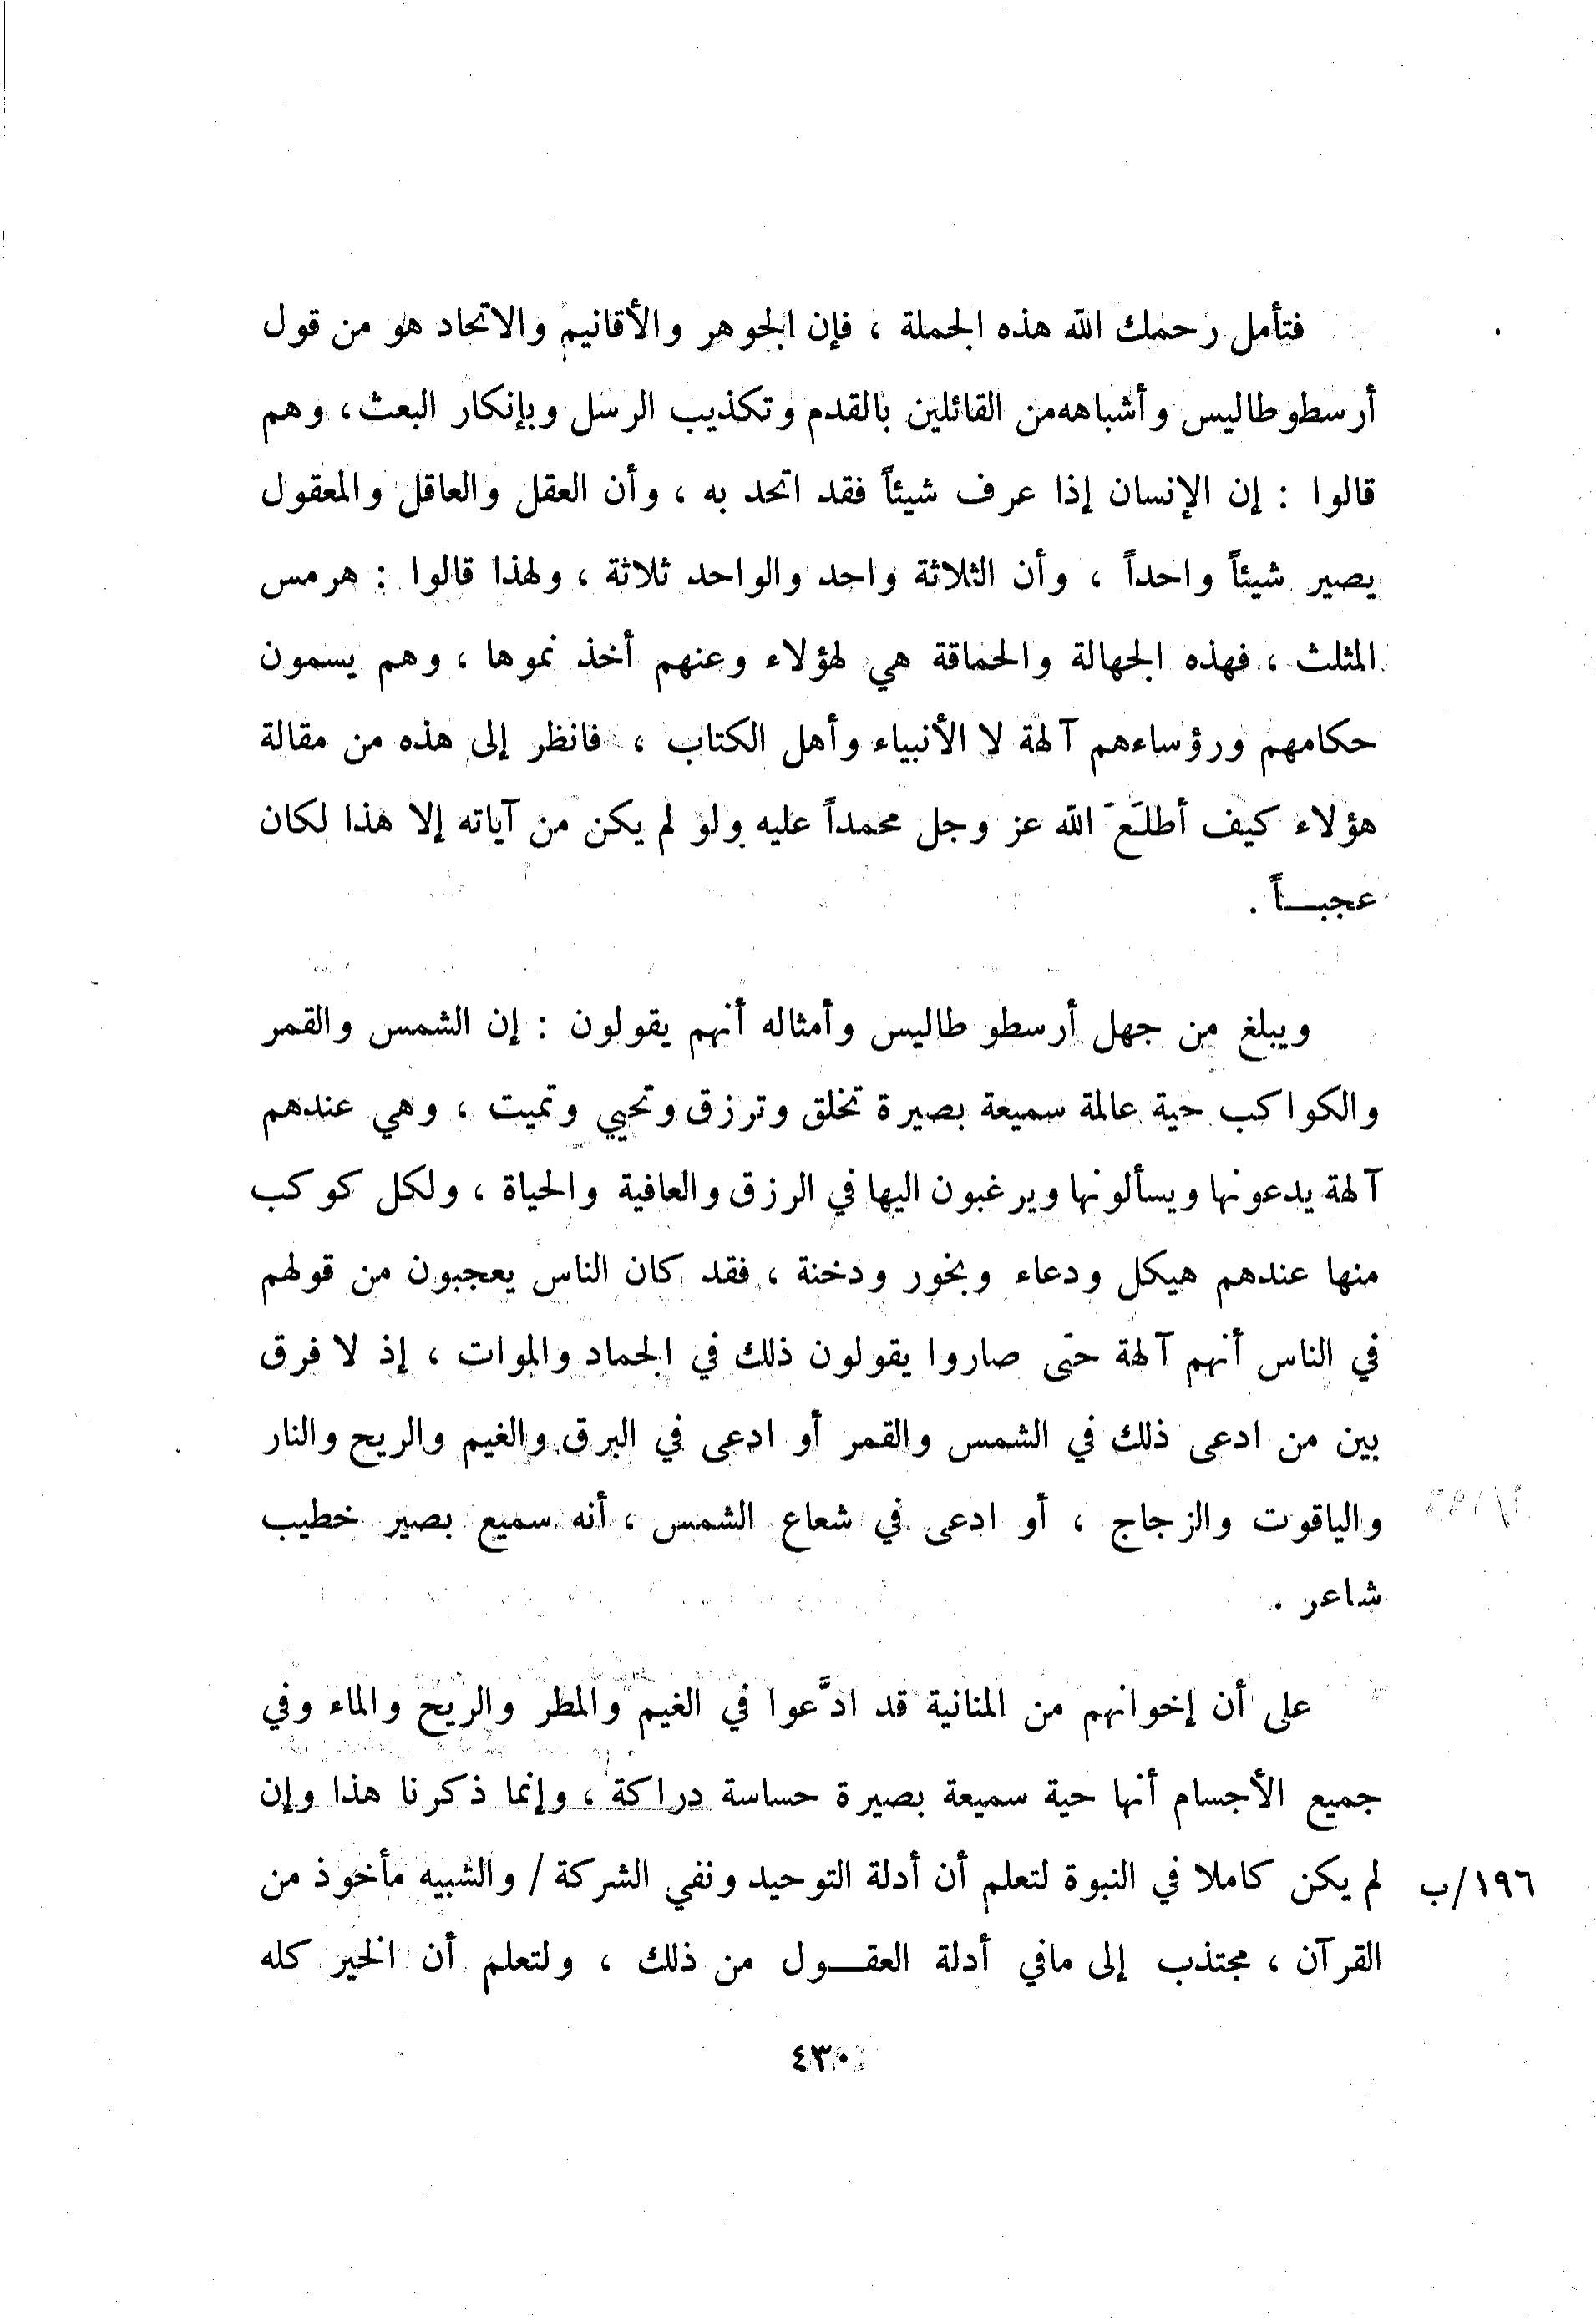 فتأمل رحمك الله هذه الجملة ، فإن الجوهر والأقانيم والاتحاد هو من قول
أرسطوطاليس وأشباهه من القائلين بالقدم وتكذيب الرسل وبإنكار البعث ، وهم
قالوا : إن الإنسان إذا عرف شيئاً فقد اتحد به ، وأن العقل والعاقل والمعقول
يصير شيئاً واحداً ، وأن الثلاثة واحد والواحد ثلاثة ، ولهذا قالوا : هرمس
المثلث ، فهذه الجهالة والحماقة هي لهؤلاء وعنهم أخذ نموها ، وهم يسمون
حكامهم ورؤساءهم آلهة لا الأنبياء وأهل الكتاب ، فانظر إلى هذه من مقالة
هؤلاء كيف أطلَعَ الله عز وجل محمداً عليه ولو لم يكن من آياته إلا هذا لكان
عجبــاً .
ويبلغ من جهل أرسطو طاليس وأمثاله أنهم يقولون : إن الشمس والقمر
والكواكب حية عالمة سميعة بصيرة تخلق وترزق وتحيي وتميت ، وهي عندهم
آلهة يدعونها ويسألونها ويرغبون اليها في الرزق والعافية والحياة ، ولكل كوكب
منها عندهم هيكل ودعاء وبخور ودخنة ، فقد كان الناس يعجبون من قولهم
في الناس أنهم آلهة حتى صاروا يقولون ذلك في الجماد والموات ، إذ لا فرق
بين من ادعى ذلك في الشمس والقمر أو ادعى في البرق والغيم والريح والنار
والياقوت والزجاج ، أو ادعى في شعاع الشمس ، أنه سميع بصير خطيب
شاعر .
على أن إخوانهم من المنانية قد ادَّعوا في الغيم والمطر والريح والماء وفي
جميع الأجسام أنها حية سميعة بصيرة حساسة دراكة ، وإنما ذكرنا هذا وإن
١٩٦/ب لم يكن كاملا في النبوة لتعلم أن أدلة التوحيد ونفي الشركة / والشبيه مأخوذ من
القرآن ، مجتذب إلى مافي أدلة العقــول من ذلك ، ولتعلم أن الخير كله
٤٣٠